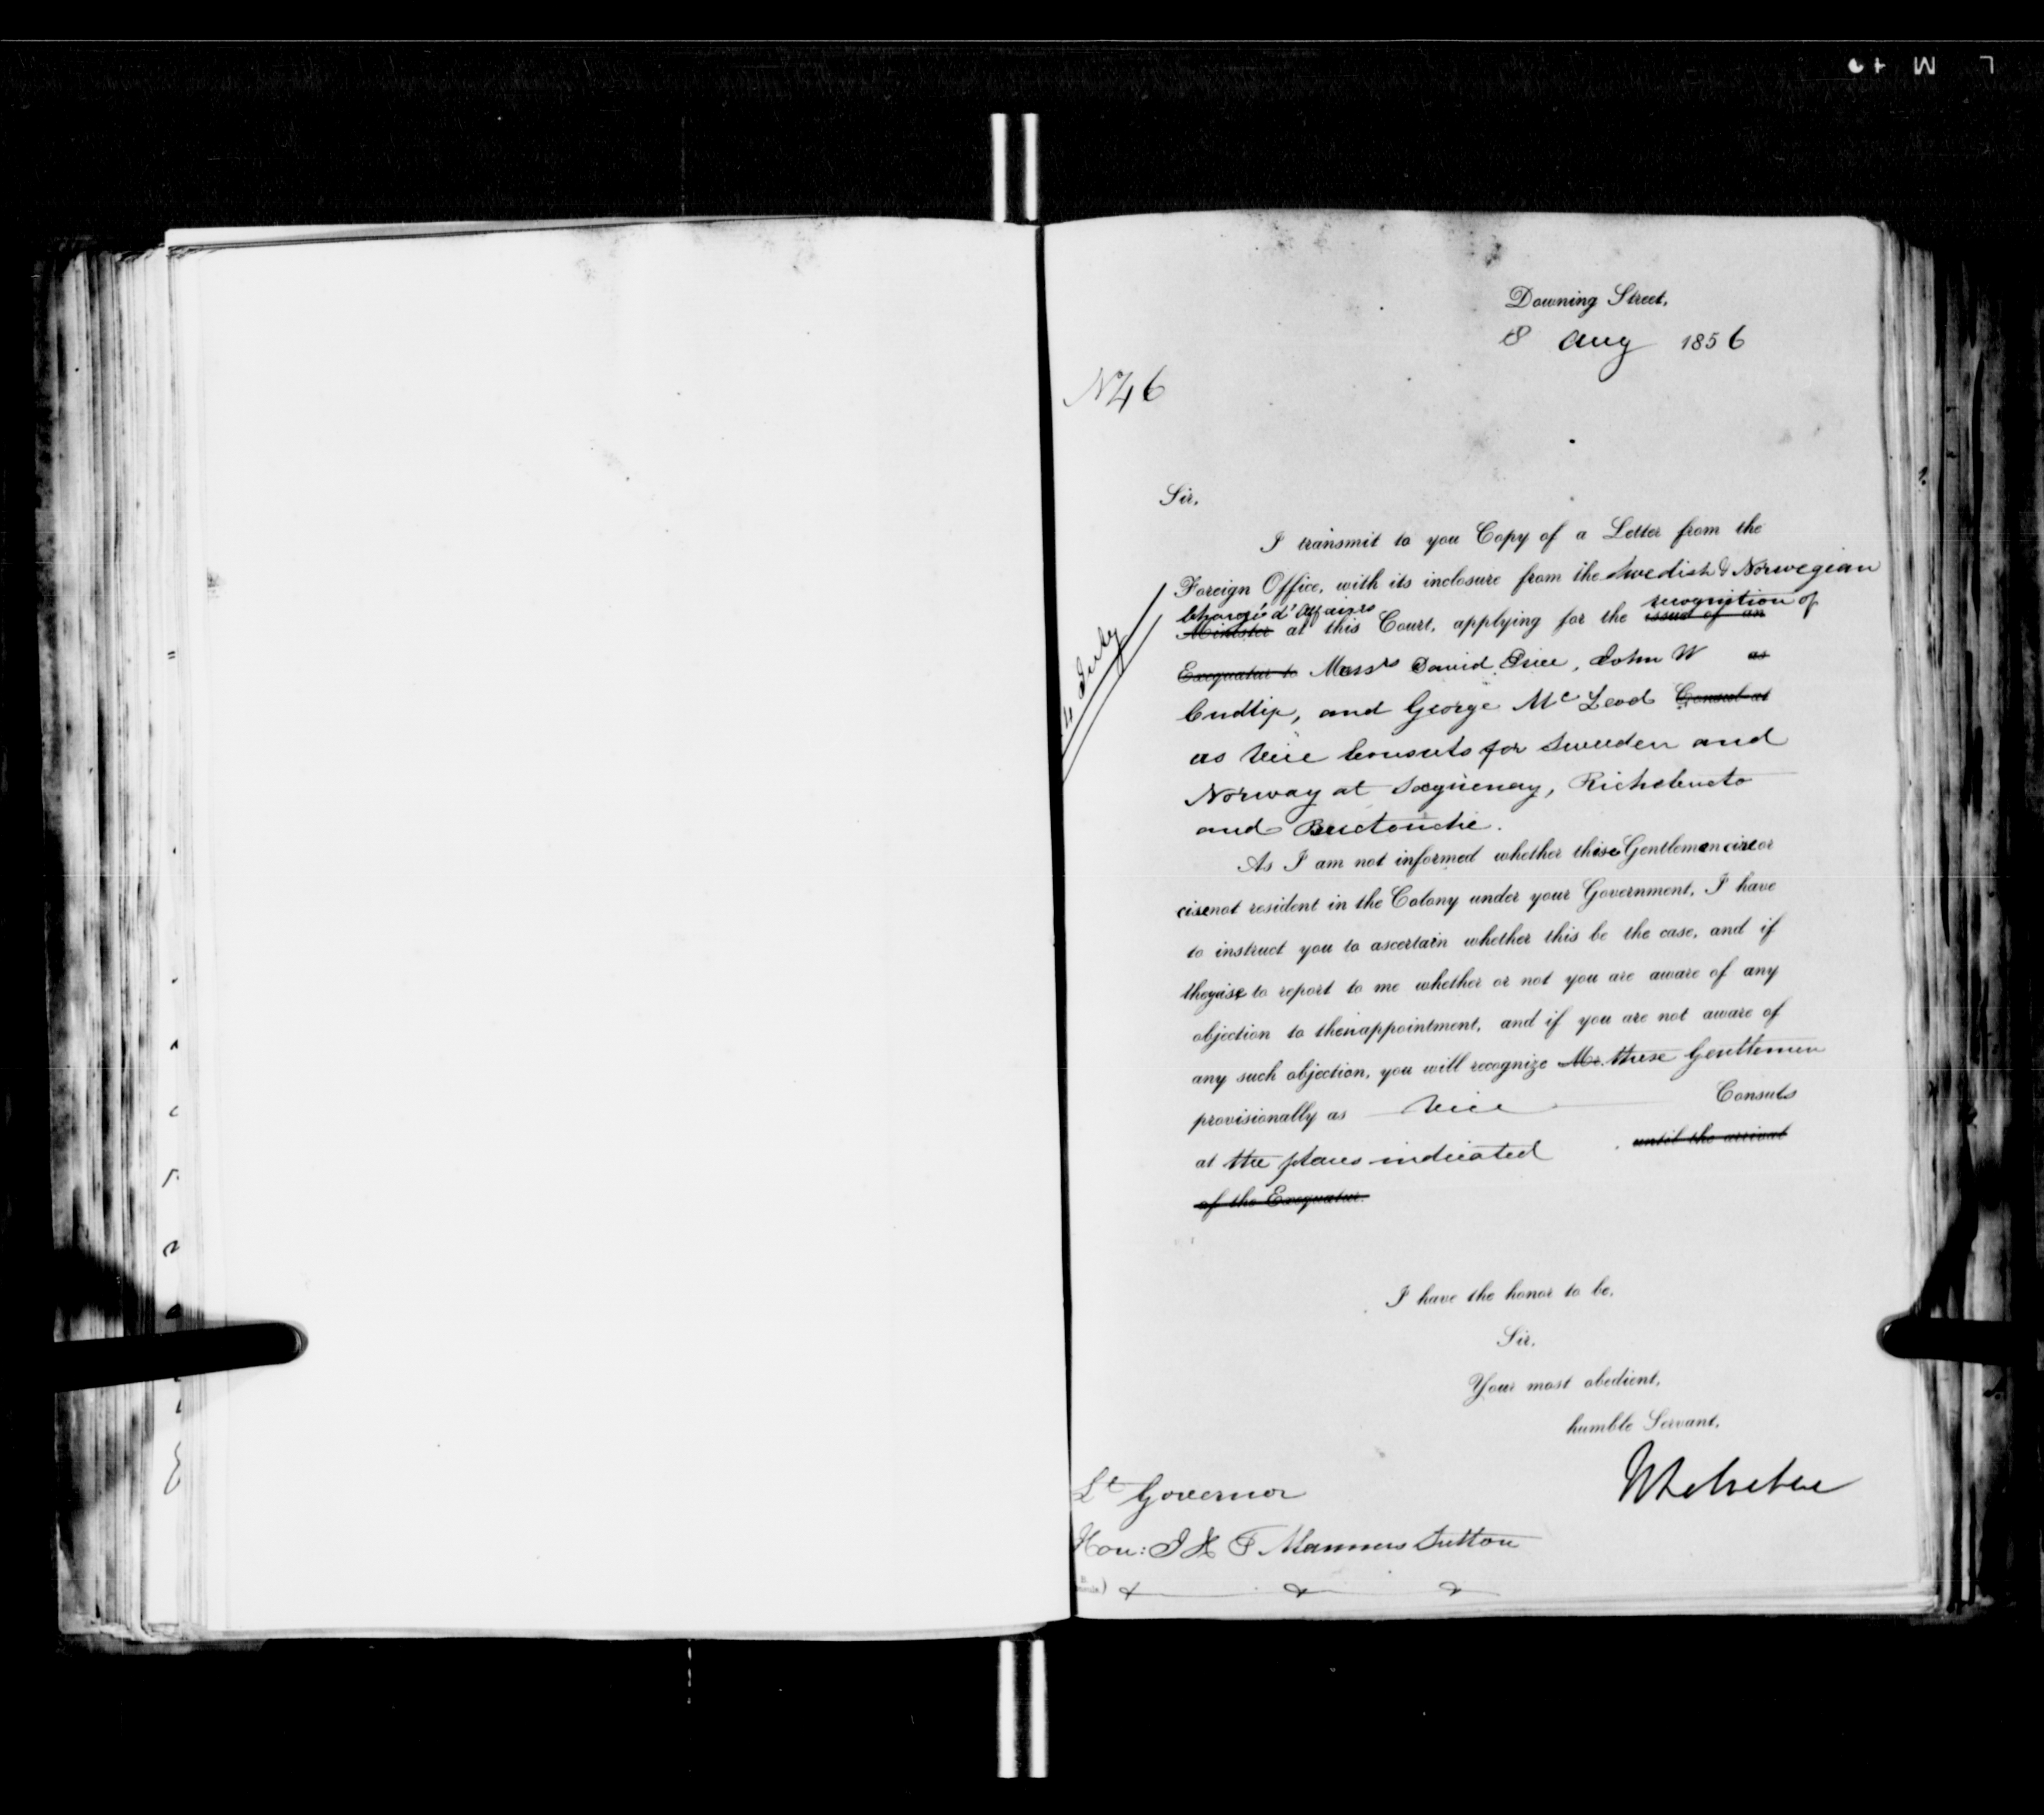 Downing Street,
8 Aug 1856
No 46
Sir,
I transmit to you Copy of a Letter from the
Foreign Office, with its inclosure from the Swedish & Norwegian
Chargé d'Affaires recognition of
Minister at this Court, applying for the issue of an
Exequatur to Messrs David Price, John W as
Cudlip, and George McLeod Consul at
as Vice Consuls for Sweden and
Norway at Saguenay, Richibucto
and Buctouche.
As I am not informed whether these Gentlemen are or
are not resident in the Colony under your Government, I have
to instruct you to ascertain whether this be the case, and if
they are to report to me whether or not you are aware of any
objection to their appointment, and if you are not aware of
any such objection, you will recognize Mr. these Gentlemen
provisionally as Vice Consuls
at the places indicated until the arrival
of the Exequatur.
I have the honor to be,
Sir,
Your most obedient,
humble Servant,
Lt Governor
Hon: J H T Manners Sutton
& & &
July